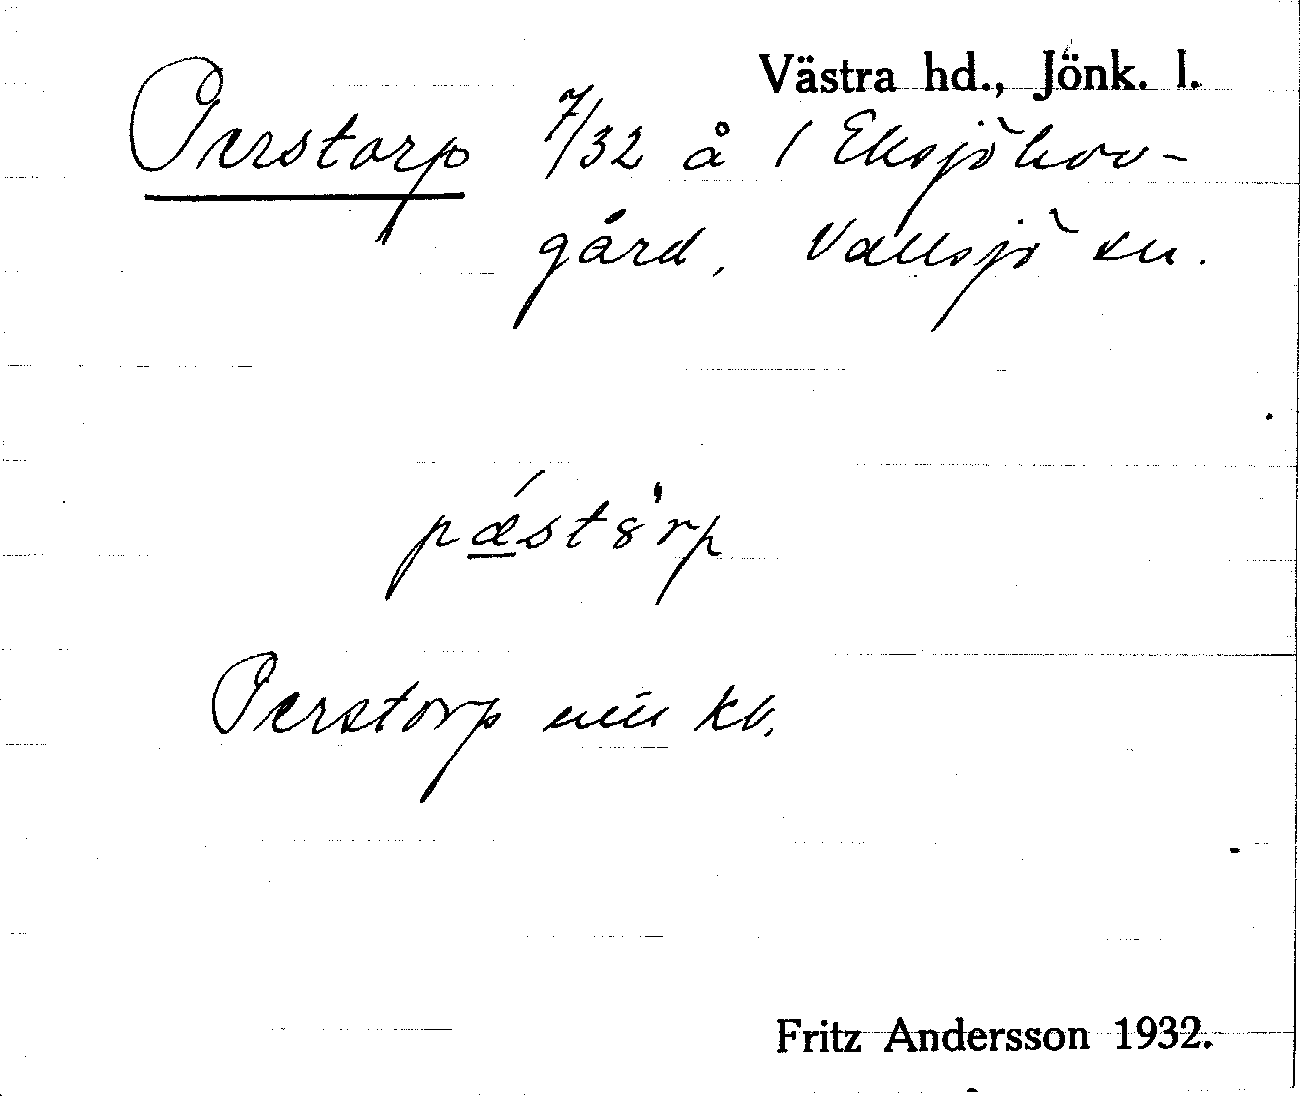 Västra hd., Jönk. l.
Perstorp 7/32 å 1 Eksjöhov-
gård, Vallsjö sn.
pǽst8̍rp
Perstorp min kb.
Fritz Andersson 1932.